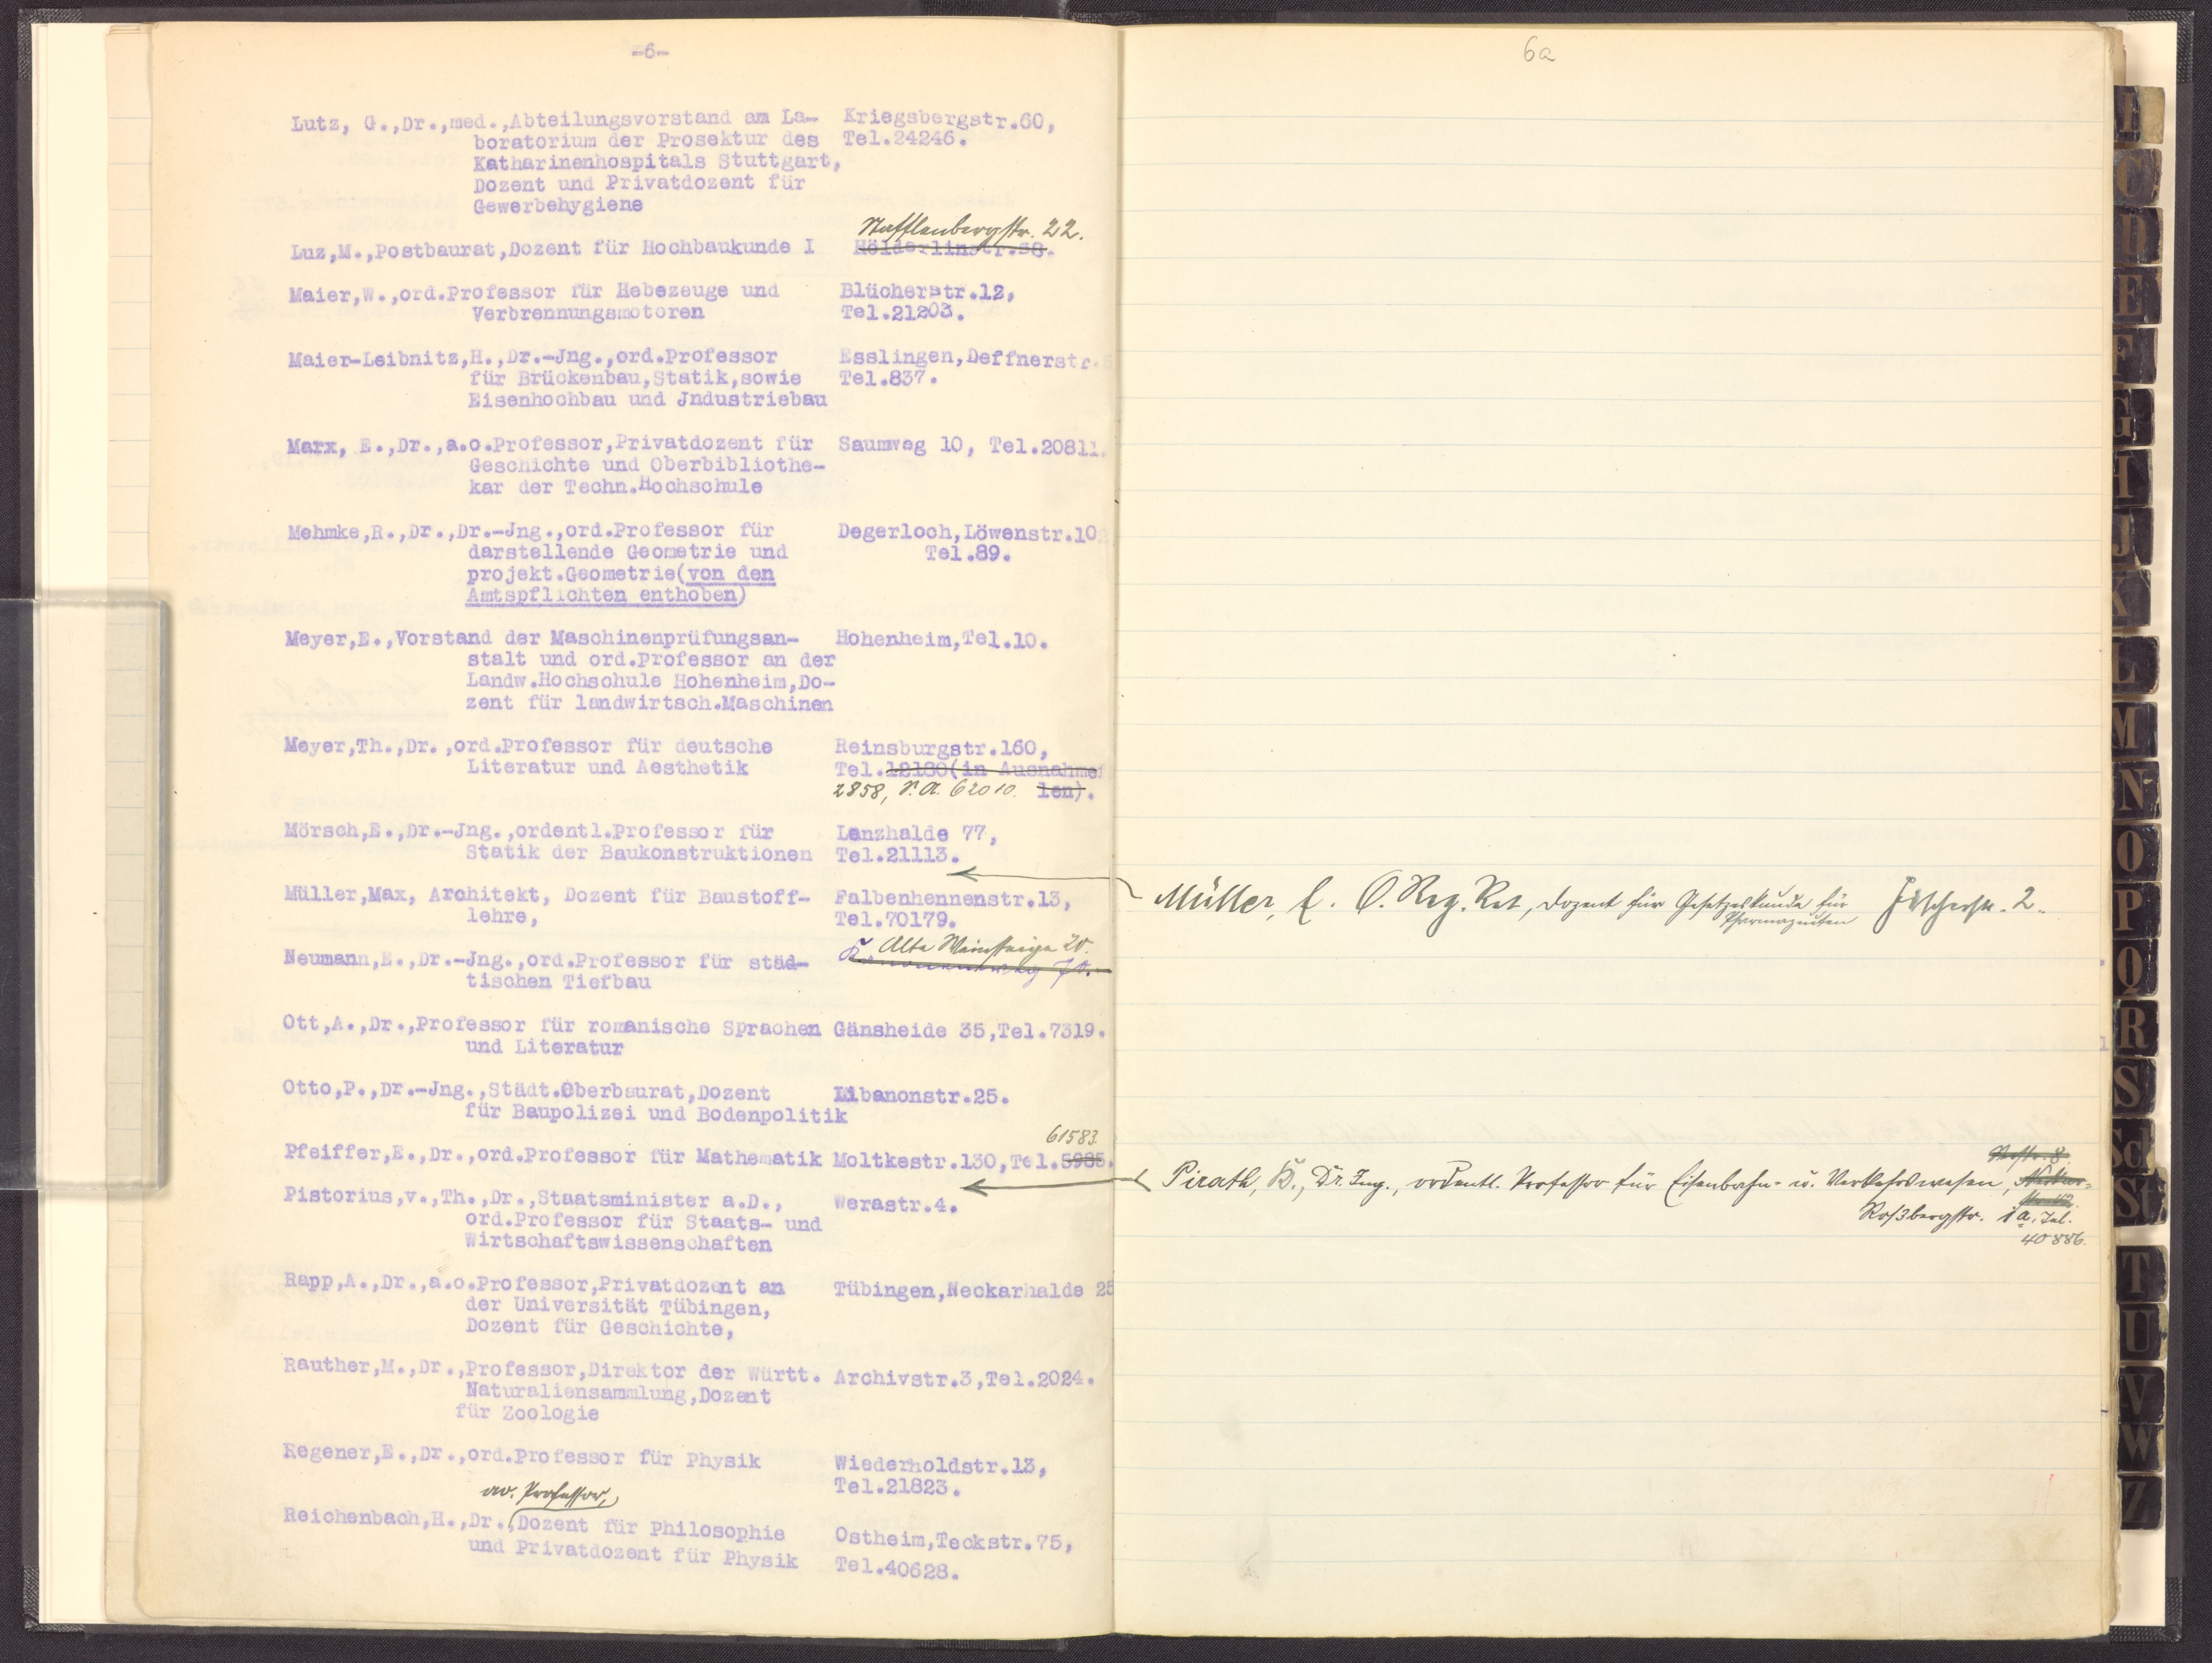 -6-
Lutz, G.,Dr.,med.,Abteilungsvorstand am La- Kriegsbergstr.60,
boratorium der Prosektur des Tel.24246.
Katharinenhospitals Stuttgart,
Dozent und Privatdozent für
Gewerbehygiene
Stafflenbergstr. 22.
Luz,M.,Postbaurat,Dozent für Hochbaukunde I Hölderlinstr.38.
Maier,W.,ord.Professor für Hebezeuge und Blücherstr.12,
Verbrennungsmotoren Tel.21203.
Maier-Leibnitz,H.,Dr.-Jng.,ord.Professor Esslingen,Deffnerstr.
für Brückenbau,Statik,sowie Tel.837.
Eisenhochbau und Jndustriebau
Marx, E.,Dr.,a.o.Professor,Privatdozent für Saumweg 10, Tel.20811.
Geschichte und Oberbibliothe-
kar der Techn.Hochschule
Mehmke,R.,Dr.,Dr.-Jng.,ord.Professor für Degerloch,Löwenstr.10
darstellende Geometrie und Tel.89.
projekt.Geometrie(von den
Amtspflichten enthoben)
Meyer,E.,Vorstand der Maschinenprüfungsan- Hohenheim,Tel.10.
stalt und ord.Professor an der
Landw.Hochschule Hohenheim,Do-
zent für landwirtsch.Maschinen
Meyer,Th.,Dr.,ord.Professor für deutsche Reinsburgstr.160,
Literatur und Aesthetik Tel.12180(in Ausnahme
2858, N.A. 62010. len).
Mörsch,E.,Dr.-Jng.,ordentl.Professor für Lenzhalde 77,
Statik der Baukonstruktionen Tel.21113.
Müller,Max, Architekt, Dozent für Baustoff- Falbenhennenstr.13,
lehre, Tel.70179.
Alte Weinsteige 20.
Neumann,E.,Dr.-Jng.,ord.Professor für städ-
tischen Tiefbau
Ott,A.,Dr.,Professor für romanische Sprachen Gänsheide 35,Tel.7319.
und Literatur
Otto,P.,Dr.-Jng.,Städt.Oberbaurat,Dozent Libanonstr.25.
für Baupolizei und Bodenpolitik
61583.
Pfeiffer,E.,Dr.,ord.Professor für Mathematik Moltkestr.130,Tel.5985.
Pistorius,v.,Th.,Dr.,Staatsminister a.D., Werastr.4.
ord.Professor für Staats- und
Wirtschaftswissenschaften
Rapp,A.,Dr.,a.o.Professor,Privatdozent an Tübingen,Neckarhalde 25
der Universität Tübingen,
Dozent für Geschichte,
Rauther,M.,Dr.,Professor,Direktor der Württ. Archivstr.3,Tel.2024.
Naturaliensammlung,Dozent
für Zoologie
Regener,E.,Dr.,ord.Professor für Physik Wiederholdstr.13,
Tel.21823.
ao. Professor,
Reichenbach,H.,Dr.,Dozent für Philosophie Ostheim,Teckstr.75,
und Privatdozent für Physik Tel.40628.
6a
Müller, E. O.Reg.Rat, Dozent für Gesetzeskunde für
Pharmazeuten
Pirath, K., Dr. Ing., ordentl. Professor für Eisenbahn- u. Verkehrswesen,
Roßbergstr. 1a, Tel.
40886.
I
C
D
E
F
G
H
J
K
L
M
N
O
P
Q
R
S
Sch
St
T
U
V
W
Z